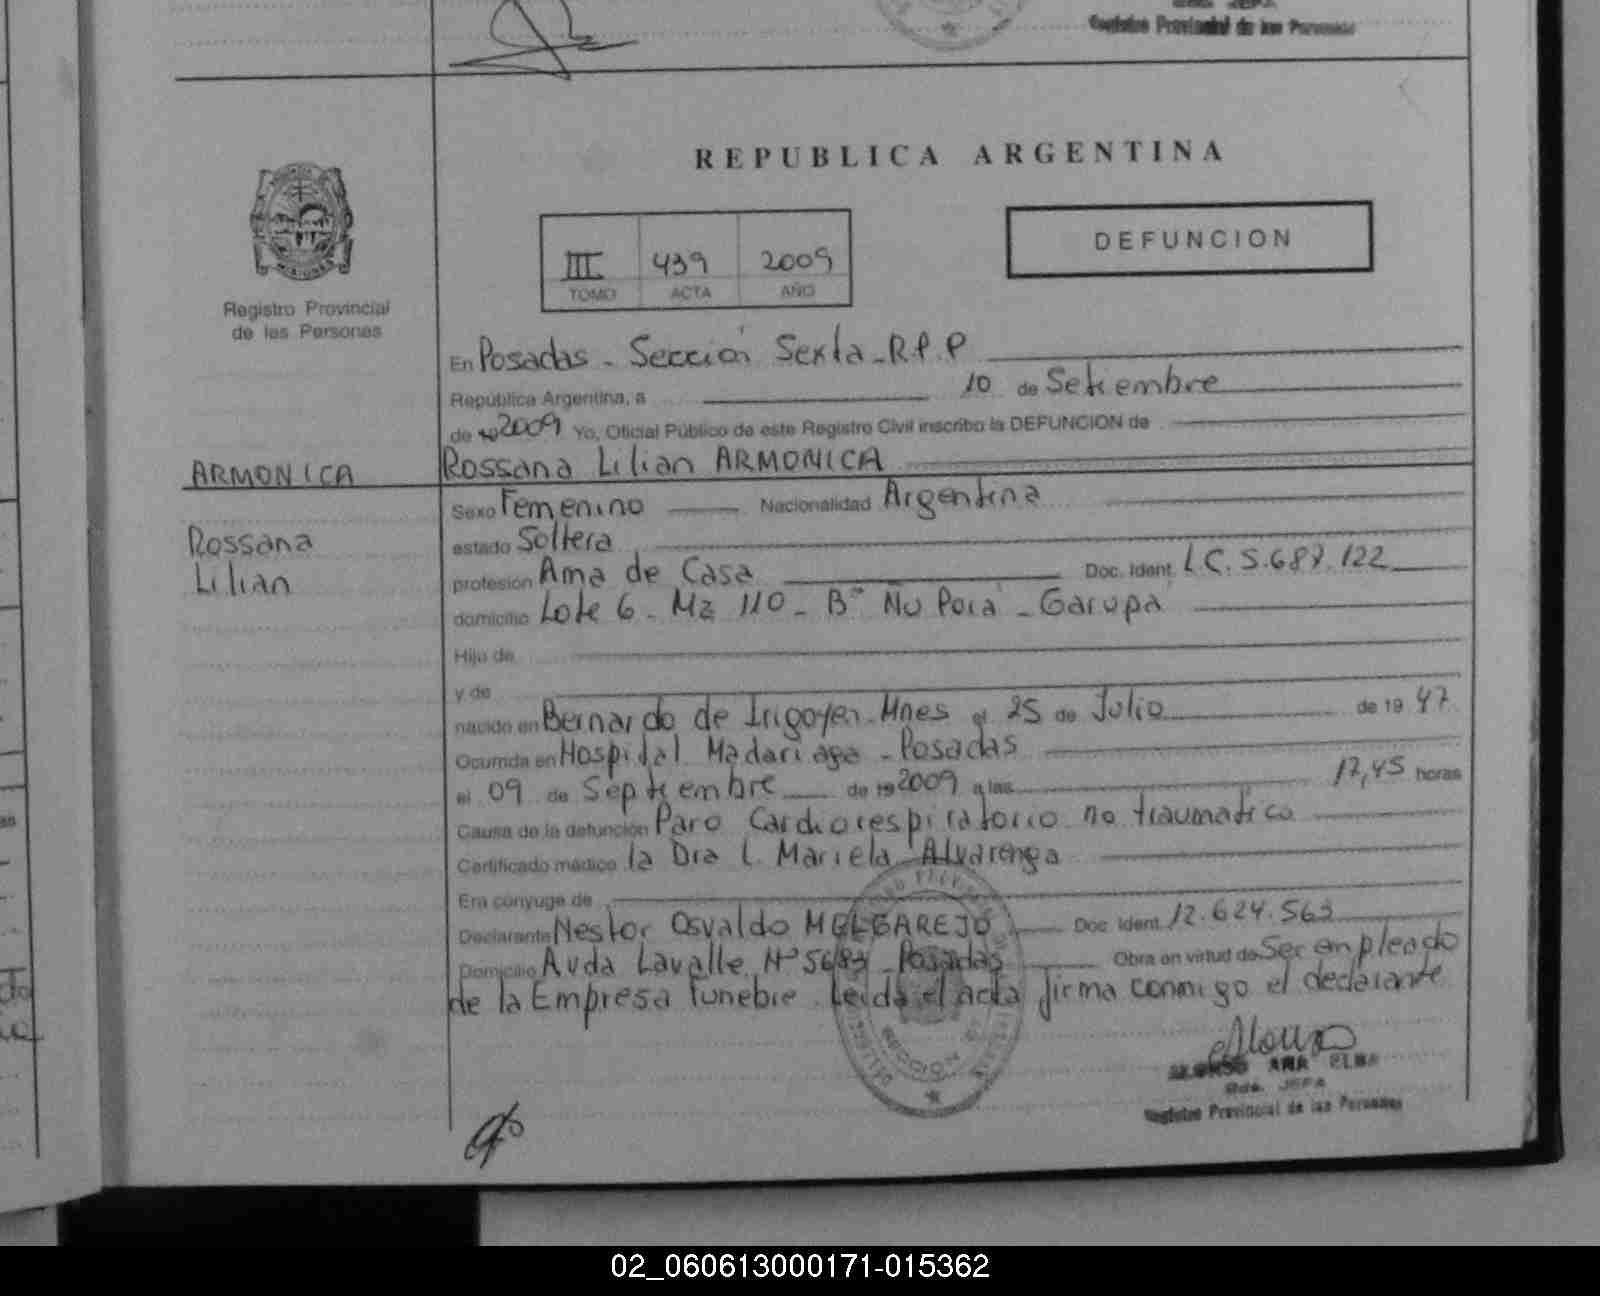 Registro Provincial de las Personas
REPUBLICA ARGENTINA
DEFUNCION
III 439 2009
TOMO ACTA AÑO
Registro Provincial
de las Personas
En Posadas - Sección Sexta - R.P.P
República Argentina, a 10 de Setiembre
de 19 2009 Yo, Oficial Público de este Registro Civil inscribo la DEFUNCION de
ARMONICA
Rossana Lilian ARMONICA
Rossana
Lilian
Sexo Femenino Nacionalidad Argentina
estado Soltera
profesión Ama de Casa Doc. Ident. L.C. 5.687.122
domicilio Lote 6 - Mz 110 - B° Ñu Porá - Garupá
Hijo de
y de
nacido en Bernardo de Irigoyen - Mnes el 25 de Julio de 19 47
Ocurrida en Hospital Madariaga - Posadas
el 09 de Septiembre de 19 2009 a las 17,45 horas
Causa de la defunción Paro Cardiorespiratorio no traumatico
Certificado médico la Dra L. Mariela Alvarenga
Era cónyuge de
Declarante Nestor Osvaldo MELGAREJO Doc. Ident. 12.624.563
Domicilio Avda Lavalle N° 5683 - Posadas Obra en virtud de Ser empleado
de la Empresa funebre. Leida el acta firma conmigo el declarante
ALONSO ANA ELBA
JEFA
Registro Provincial de las Personas
SECCION
02_060613000171-015362